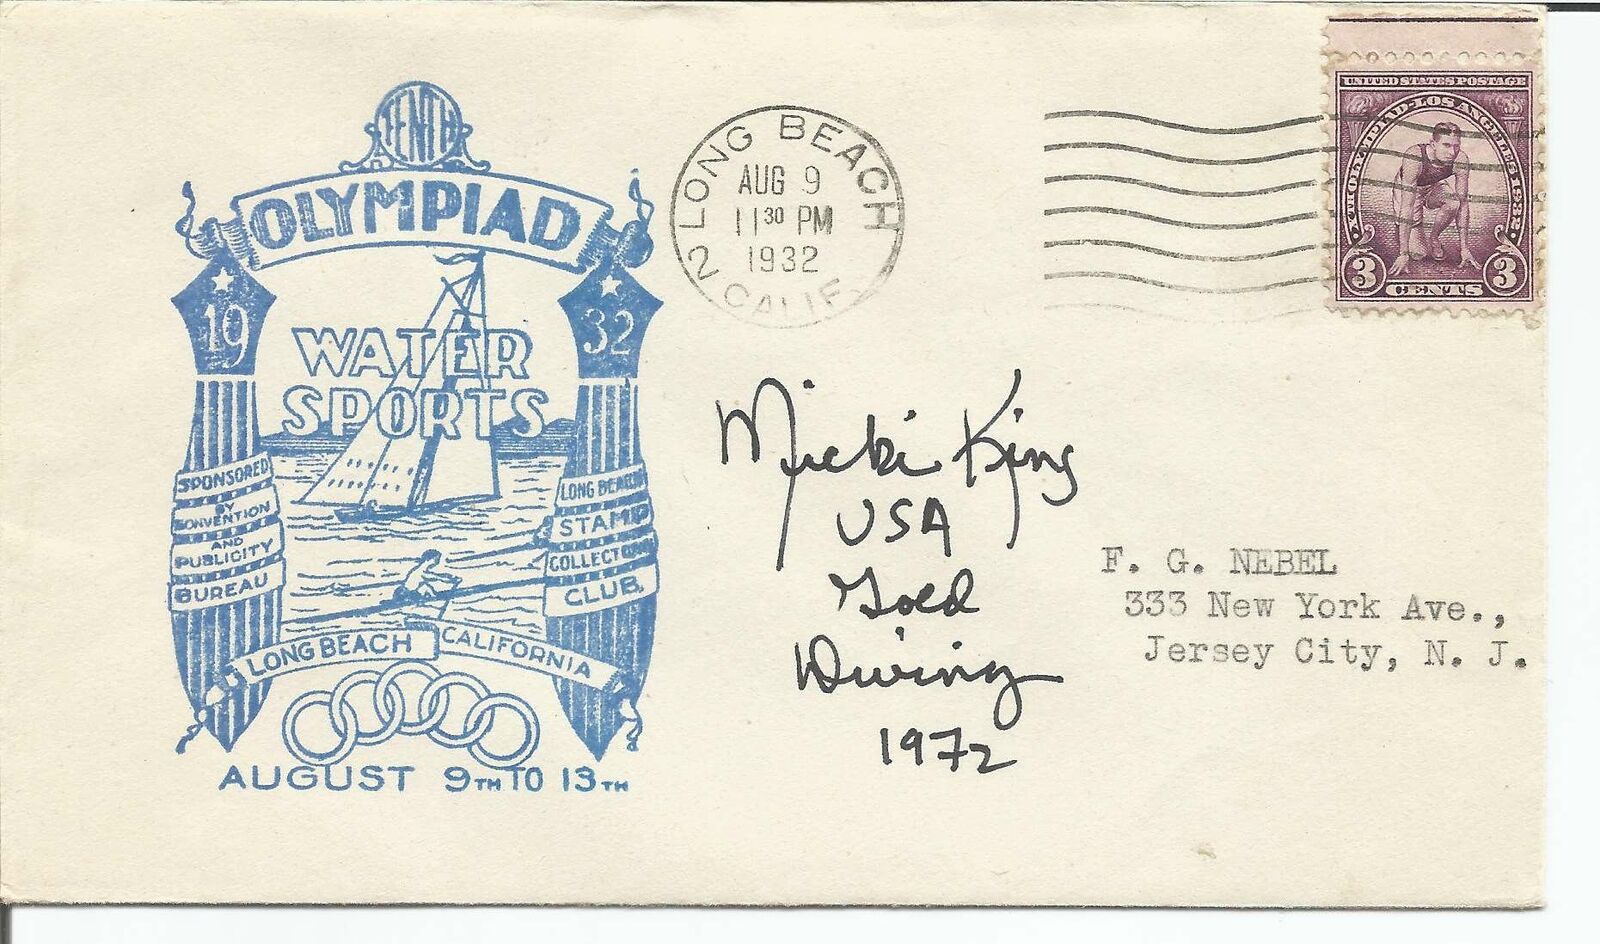 TENTH
OLYMPIAD
19 32
WATER
SPORTS
SPONSORED
BY
CONVENTION
AND
PUBLICITY
BUREAU
LONG BEACH
STAMP
COLLECTORS
CLUB.
LONG BEACH CALIFORNIA
AUGUST 9TH TO 13TH
LONG BEACH
AUG 9
11 30 PM
1932
2 CALIF.
UNITED STATES POSTAGE
XTH OLYMPIAD-LOS ANGELES 1932
3 3
CENTS
Micki King
USA
Gold
Diving
1972
F. G. NEBEL
333 New York Ave.,
Jersey City, N. J.